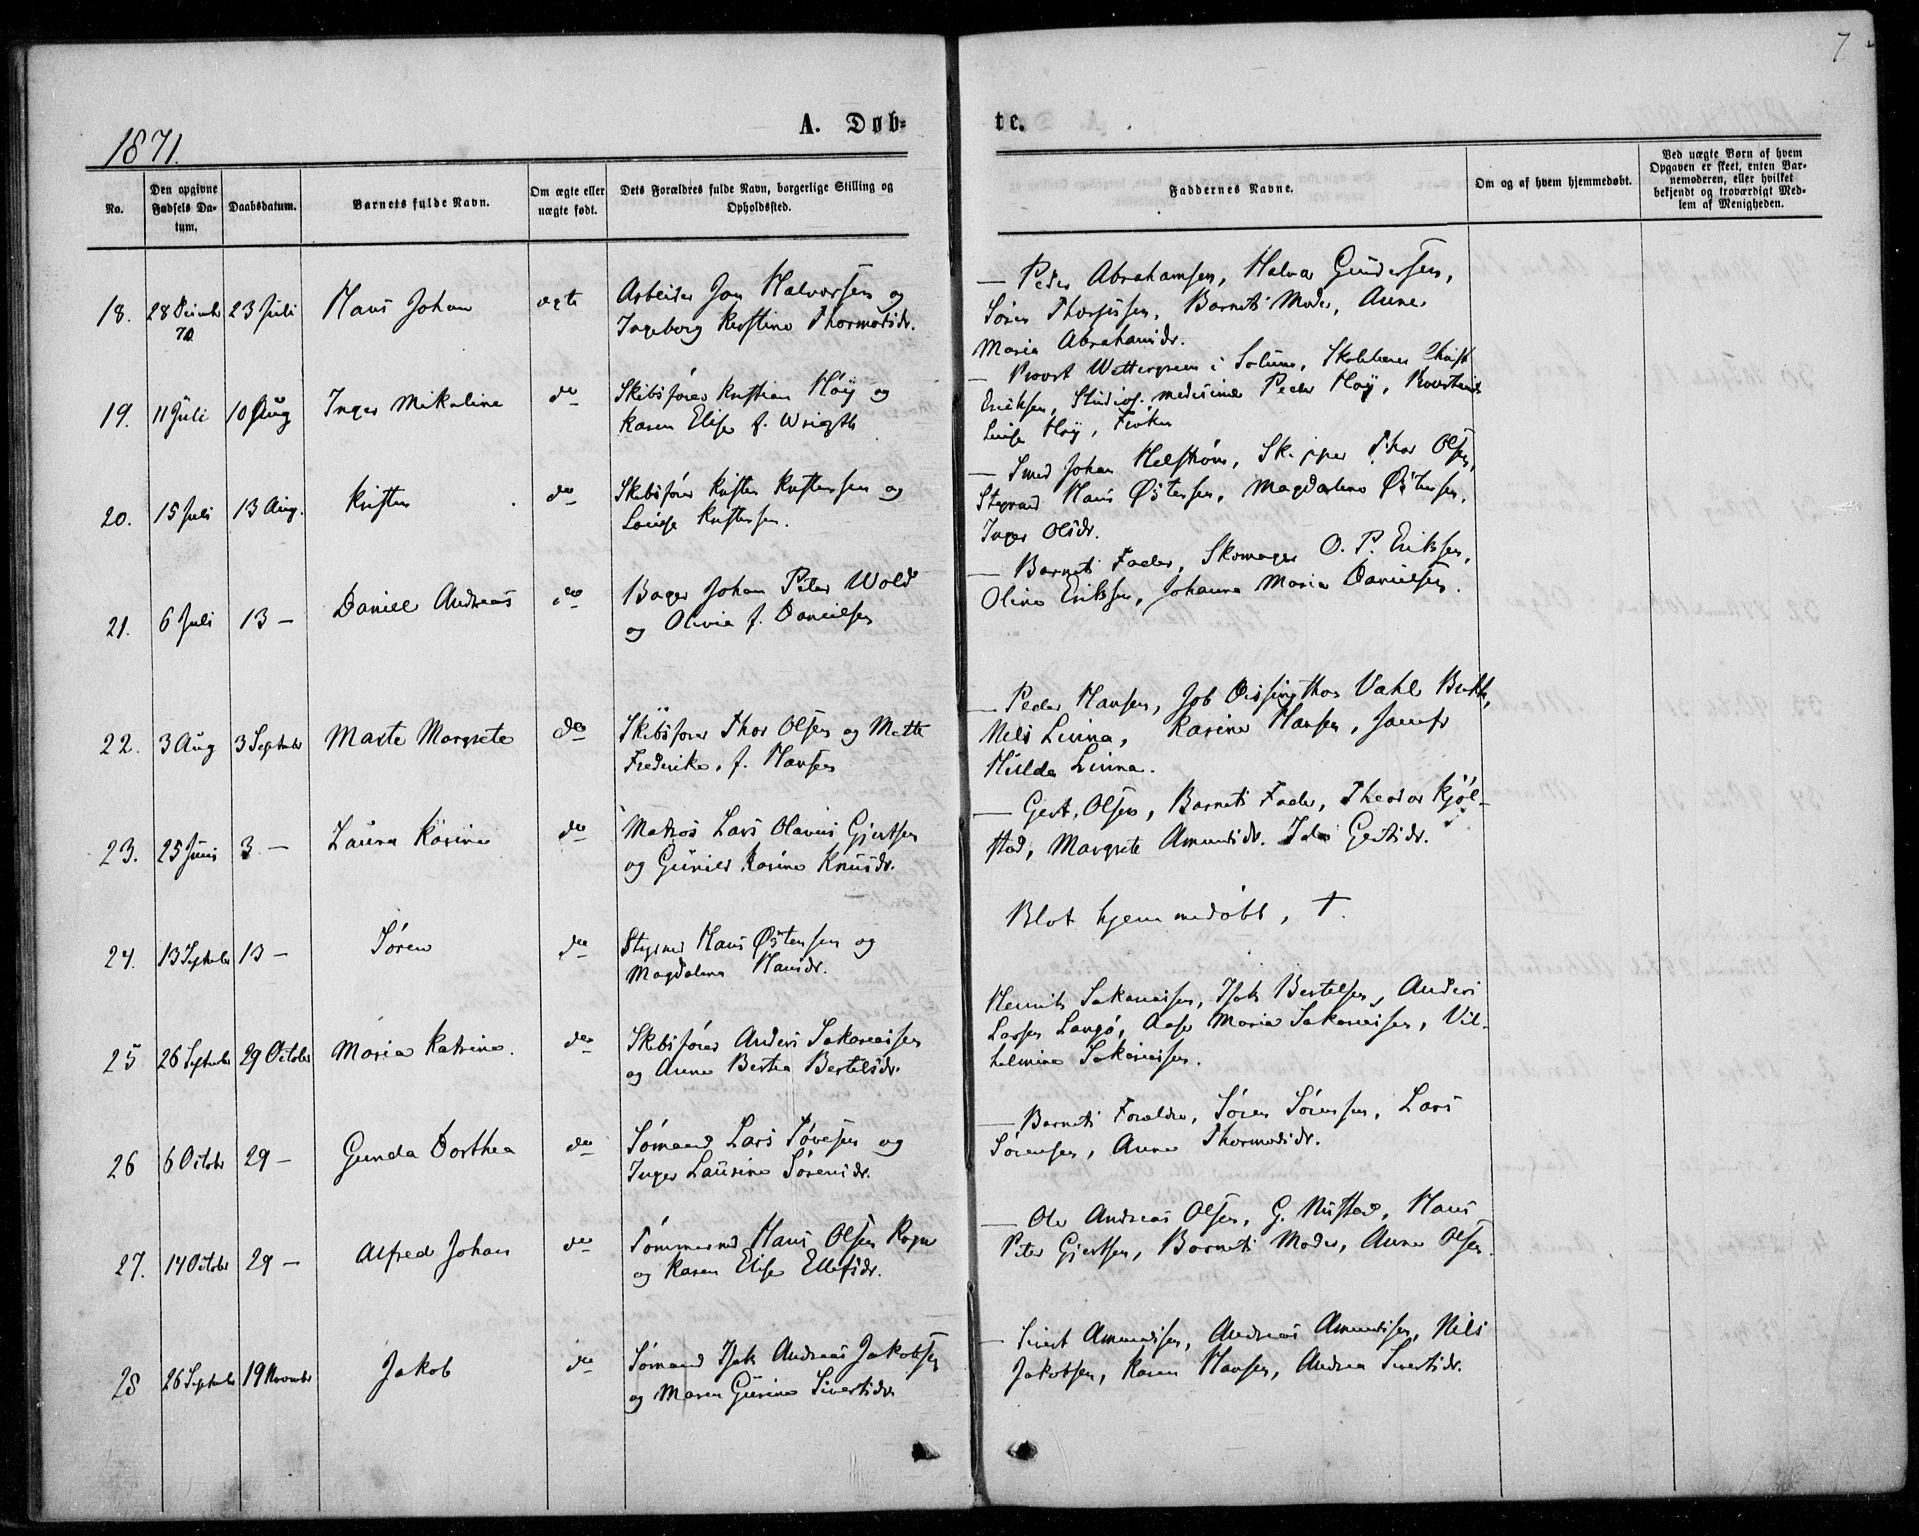 7
1871.
A. Døb-
te.
No.
Den opgivne Fødsels Datum.
Daabsdatum.
Barnets fulde Navn.
Om ægte eller uægte født.
Dets Forældres fulde Navn, borgerlige Stilling og Opholdssted.
Faddernes Navne.
Om og af hvem hjemmedøbt.
Ved uægte Børn af hvem Opgaven er skeet, enten Barnemoderen, eller hvilket bekjendt og troværdigt Medlem af Menigheden.
18. 28 Decmbr 70. 23 Juli Hans Johan ægte
Arbeider Jon Halvorsen og
Ingeborg Kirstine Thormodsdr.
— Peder Abrahamsen, Halvor Gundersen,
Søren Thorjussen, Barnets Moder, Anne
Maria Abrahamsdr.
19. 11 Juli 10 Aug Inger Mikaline do
Skibsfører Kristian Høÿ og
Karen Elise f. Wrigth
— Provst Wettergreen i Solum,
Eriksen, Studios. medicine Peder Høÿ,
Louise Høÿ, Frøken
20. 15 Juli 13 Aug. Kristen do
Skibsfører Kristen Kristensen og
Louise Kristensen.
— Smed Johan Helstrøm, Skipper Thor Olsen,
Styrmd Hans Østensen, Magdalena Østensen,
Inger Olsdr.
21. 6 Juli 13 — Daniel Andreas do
Bager Johan Peter Wold
og Olivia f. Danielsen
— Barnets Fader, Skomager O. P. Eriksen,
Oline Eriksen, Johanne Maria Danielsen.
22. 3 Aug 3 Septmbr Marte Margrete do
Skibsfører Thor Olsen og Mette
Frederike, f. Hansen
— Peder Hansen, Job Dissingthor Vahl
Nils Linna, Karine Hansen, Jomfr
Hulda Linna.
23. 25 Juni 3 — Laura Karine do
Matros Lars Olavus Gjertsen
og Gunild Karine Knusdr.
— Gert Olsen, Barnets Fader, Theodor Kjøl-
stad, Margrete Amundsdr. Ida Gertsdr.
24. 13 Septmbr 13 — Søren do
Styrmd Hans Østensen og
Magdalena Hansdr.
Blot hjemmedøbt, †.
25 26 Septmbr 29 October Maria Katrine. do
Skibsfører Anders Sakariassen
og Anne Bertea Bertelsdr.
Henrik Sakariassen, Isak Bertelsen, Anders
Larsen Langø, Aase Maria Sakariassen, Vil-
helmine Sakariassen.
26 6 Octobr 29 — Gunda Dorthea do
Sømand Lars Søresen og
Inger Laurine Sørensdr.
— Barnets Forældre, Søren Sørensen, Lars
Sørensen, Anne Thormodsdr.
27. 14 Octobr 29 — Alfred Johan do
Tømmermd Hans Olsen Rogn
og Karen Elise Ellefsdr.
— Ole Andreas Olsen, G. Nustad, Hans
Peter Gjertsen, Barnets Moder, Anne Olsen.
28 26 Septmbr 19 Novmbr Jakob do
Sømand Isak Andreas Jakobsen
og Maren Gurine Sivertsdr
— Sivert Amundsen, Andreas Amundsen, Nils
Jakobsen, Karen Hansen, Andrea Sivertsdr.